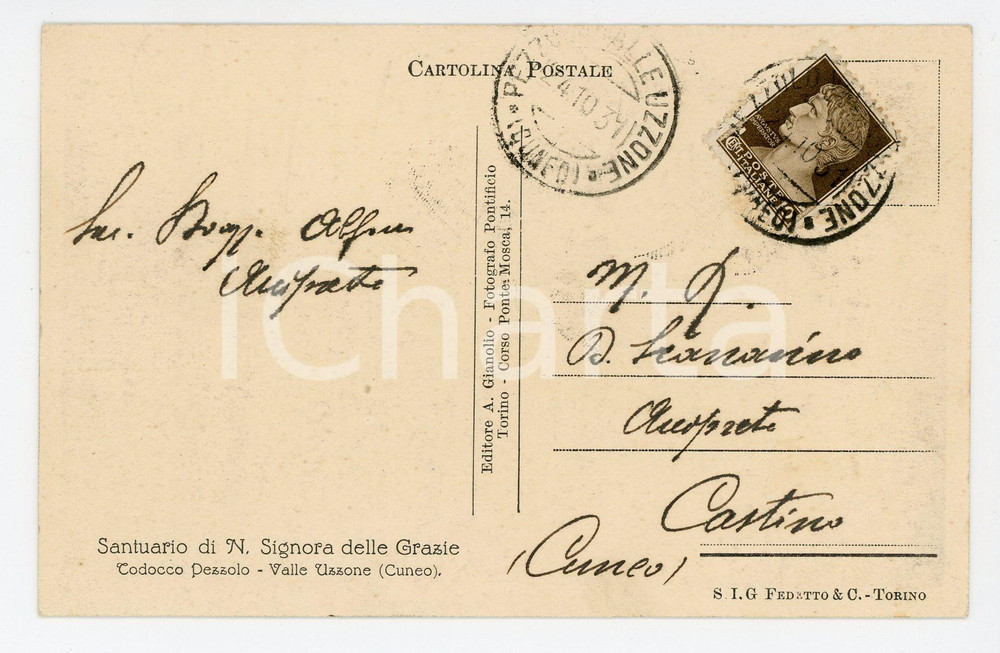 CARTOLINA POSTALE
PEZZOLO VALLE UZZONE
4.10.39
(CUNEO)
POSTE
ITALIANE
UZZONE
(CUNEO)
Sac. Alfieri
Arciprete
Editore A. Gianolio - Fotografo Pontificio
Torino - Corso Ponte Mosca, 14.
M. R.
D.
Arciprete
Castino
(Cuneo)
Santuario di N. Signora delle Grazie
Todocco Pezzolo - Valle Uzzone (Cuneo).
S I.G FEDETTO & C.-TORINO
iCharta